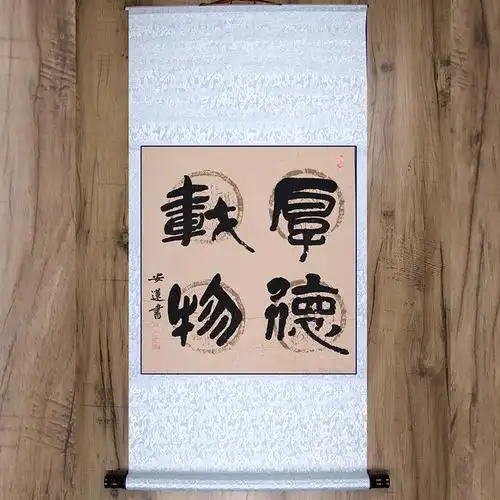 厚德
載物
安蓮書